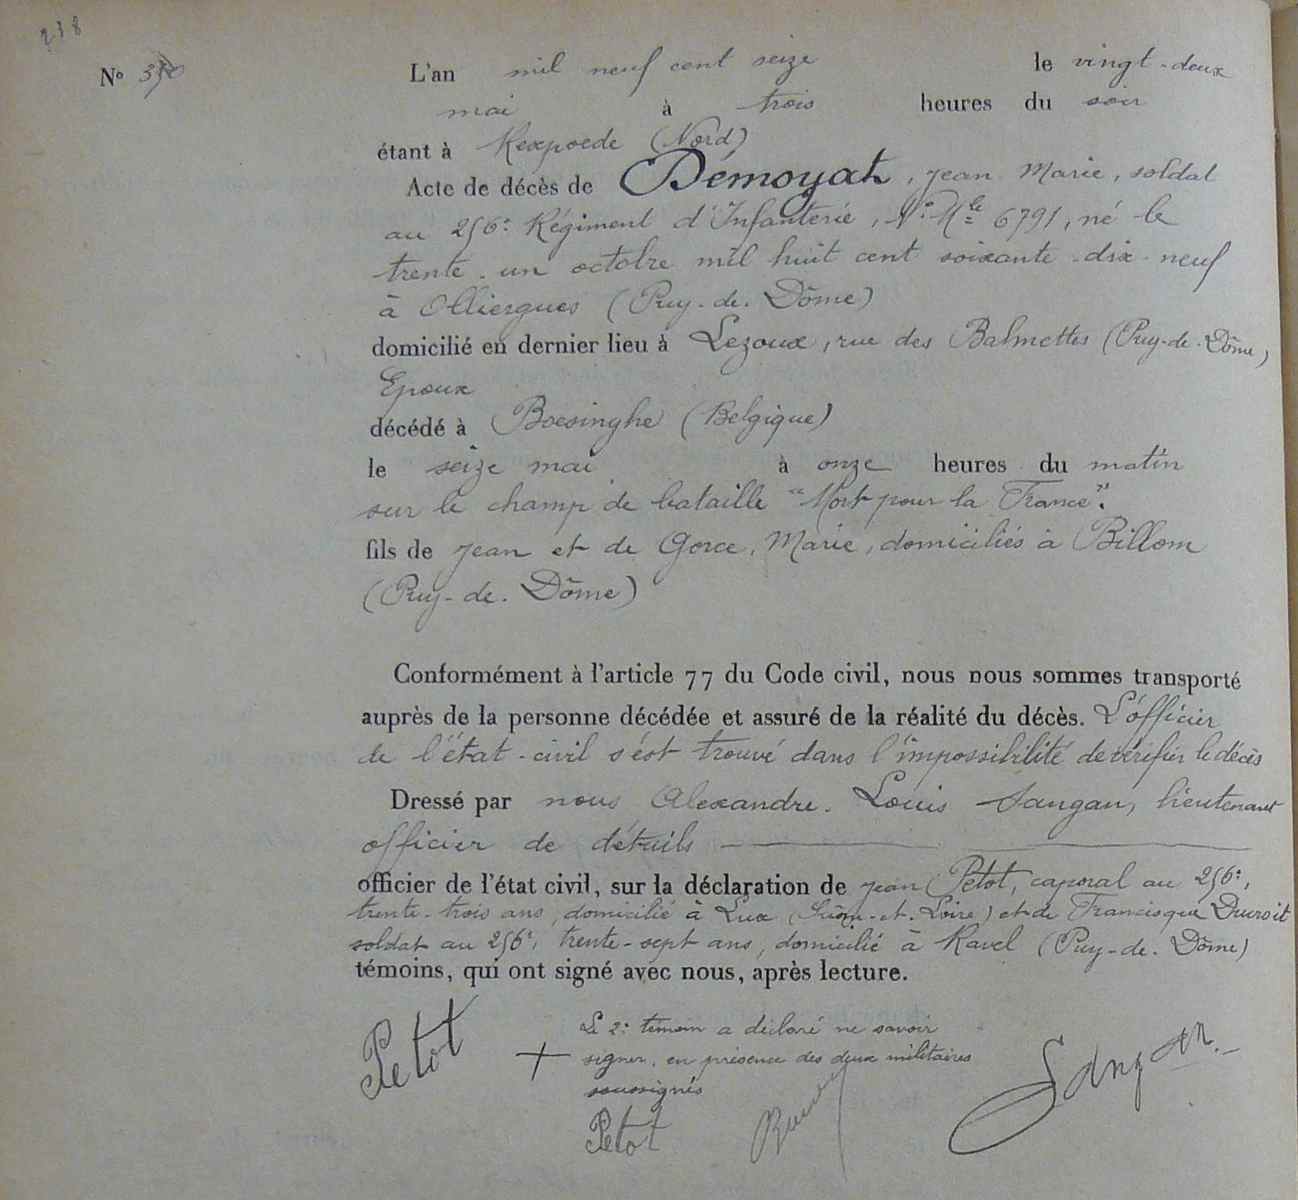 238
N° 3
L'an mil neuf cent seize le vingt-deux
mai à trois heures du soir
étant à Rexpoede (Nord)
Acte de décès de Démoyat, Jean Marie, soldat
au 256e Régiment d'Infanterie, N° Mle 6791, né le
trente-un octobre mil huit cent soixante-dix-neuf
à Olliergues (Puy-de-Dôme)
domicilié en dernier lieu à Lezoux, rue des Balmettes (Puy-de-Dôme)
Epoux
décédé à Boesinghe (Belgique)
le seize mai à onze heures du matin
sur le champ de bataille "Mort pour la France".
fils de Jean et de Gorce, Marie, domiciliés à Billom
(Puy-de-Dôme)
Conformément à l'article 77 du Code civil, nous nous sommes transporté
auprès de la personne décédée et assuré de la réalité du décès. L'officier
de l'état-civil s'est trouvé dans l'impossibilité de vérifier le décès
Dressé par nous Alexandre-Louis Sangan, lieutenant
officier de détails
officier de l'état civil, sur la déclaration de Jean Petot, caporal au 256e,
trente-trois ans, domicilié à Lux (Saône-et-Loire) et de Francisque
soldat au 256e, trente-sept ans, domicilié à Ravel (Puy-de-Dôme)
témoins, qui ont signé avec nous, après lecture.
Petot + Le 2e témoin a déclaré ne savoir
signer, en présence des deux militaires
soussignés
Petot Sangan